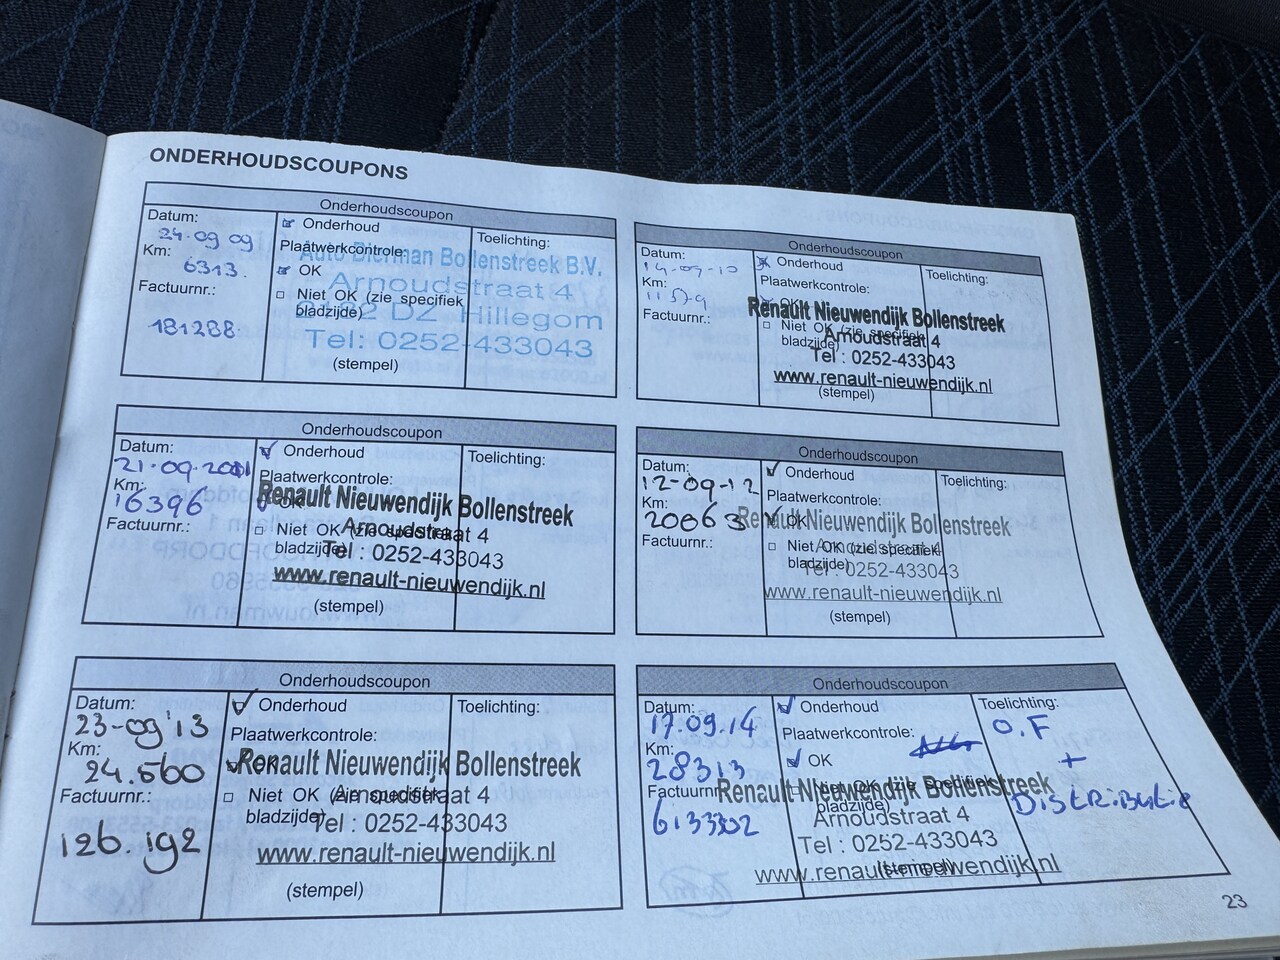 ONDERHOUDSCOUPONS
Onderhoudscoupon
Datum:
24-09 09
Km:
6313.
Factuurnr.:
181288
Onderhoud
Plaatwerkcontrole:
OK
Niet OK (zie specifiek
bladzijde)
Auto Bollenstreek B.V.
Arnoudstraat 4
DZ Hillegom
Tel: 0252-433043
(stempel)
Toelichting:
Onderhoudscoupon
Datum:
14-09-10
Km:
Factuurnr.:
Onderhoud
Plaatwerkcontrole:
OK
Niet OK (zie specifiek
bladzijde)
Renault Nieuwendijk Bollenstreek
Arnoudstraat 4
Tel : 0252-433043
www.renault-nieuwendijk.nl
(stempel)
Toelichting:
Onderhoudscoupon
Datum:
21-09-2011
Km:
16396
Factuurnr.:
Onderhoud
Plaatwerkcontrole:
OK
Niet OK (zie specifiek
bladzijde)
Renault Nieuwendijk Bollenstreek
Arnoudstraat 4
Tel : 0252-433043
www.renault-nieuwendijk.nl
(stempel)
Toelichting:
Onderhoudscoupon
Datum:
12-09-12
Km:
20063
Factuurnr.:
Onderhoud
Plaatwerkcontrole:
OK
Niet OK (zie specifiek
bladzijde)
Renault Nieuwendijk Bollenstreek
Arnoudstraat 4
Tel : 0252-433043
www.renault-nieuwendijk.nl
(stempel)
Toelichting:
Onderhoudscoupon
Datum:
23-09'13
Km:
24.560
Factuurnr.:
126.192
Onderhoud
Plaatwerkcontrole:
OK
Niet OK (zie specifiek
bladzijde)
Renault Nieuwendijk Bollenstreek
Arnoudstraat 4
Tel : 0252-433043
www.renault-nieuwendijk.nl
(stempel)
Toelichting:
Onderhoudscoupon
Datum:
17.09.14
Km:
28313
Factuurnr.:
6133302
Onderhoud
Plaatwerkcontrole:
OK
Niet OK (zie specifiek
bladzijde)
Renault Nieuwendijk Bollenstreek
Arnoudstraat 4
Tel : 0252-433043
www.renault-nieuwendijk.nl
(stempel)
Toelichting:
O.F
+
Distributie
23